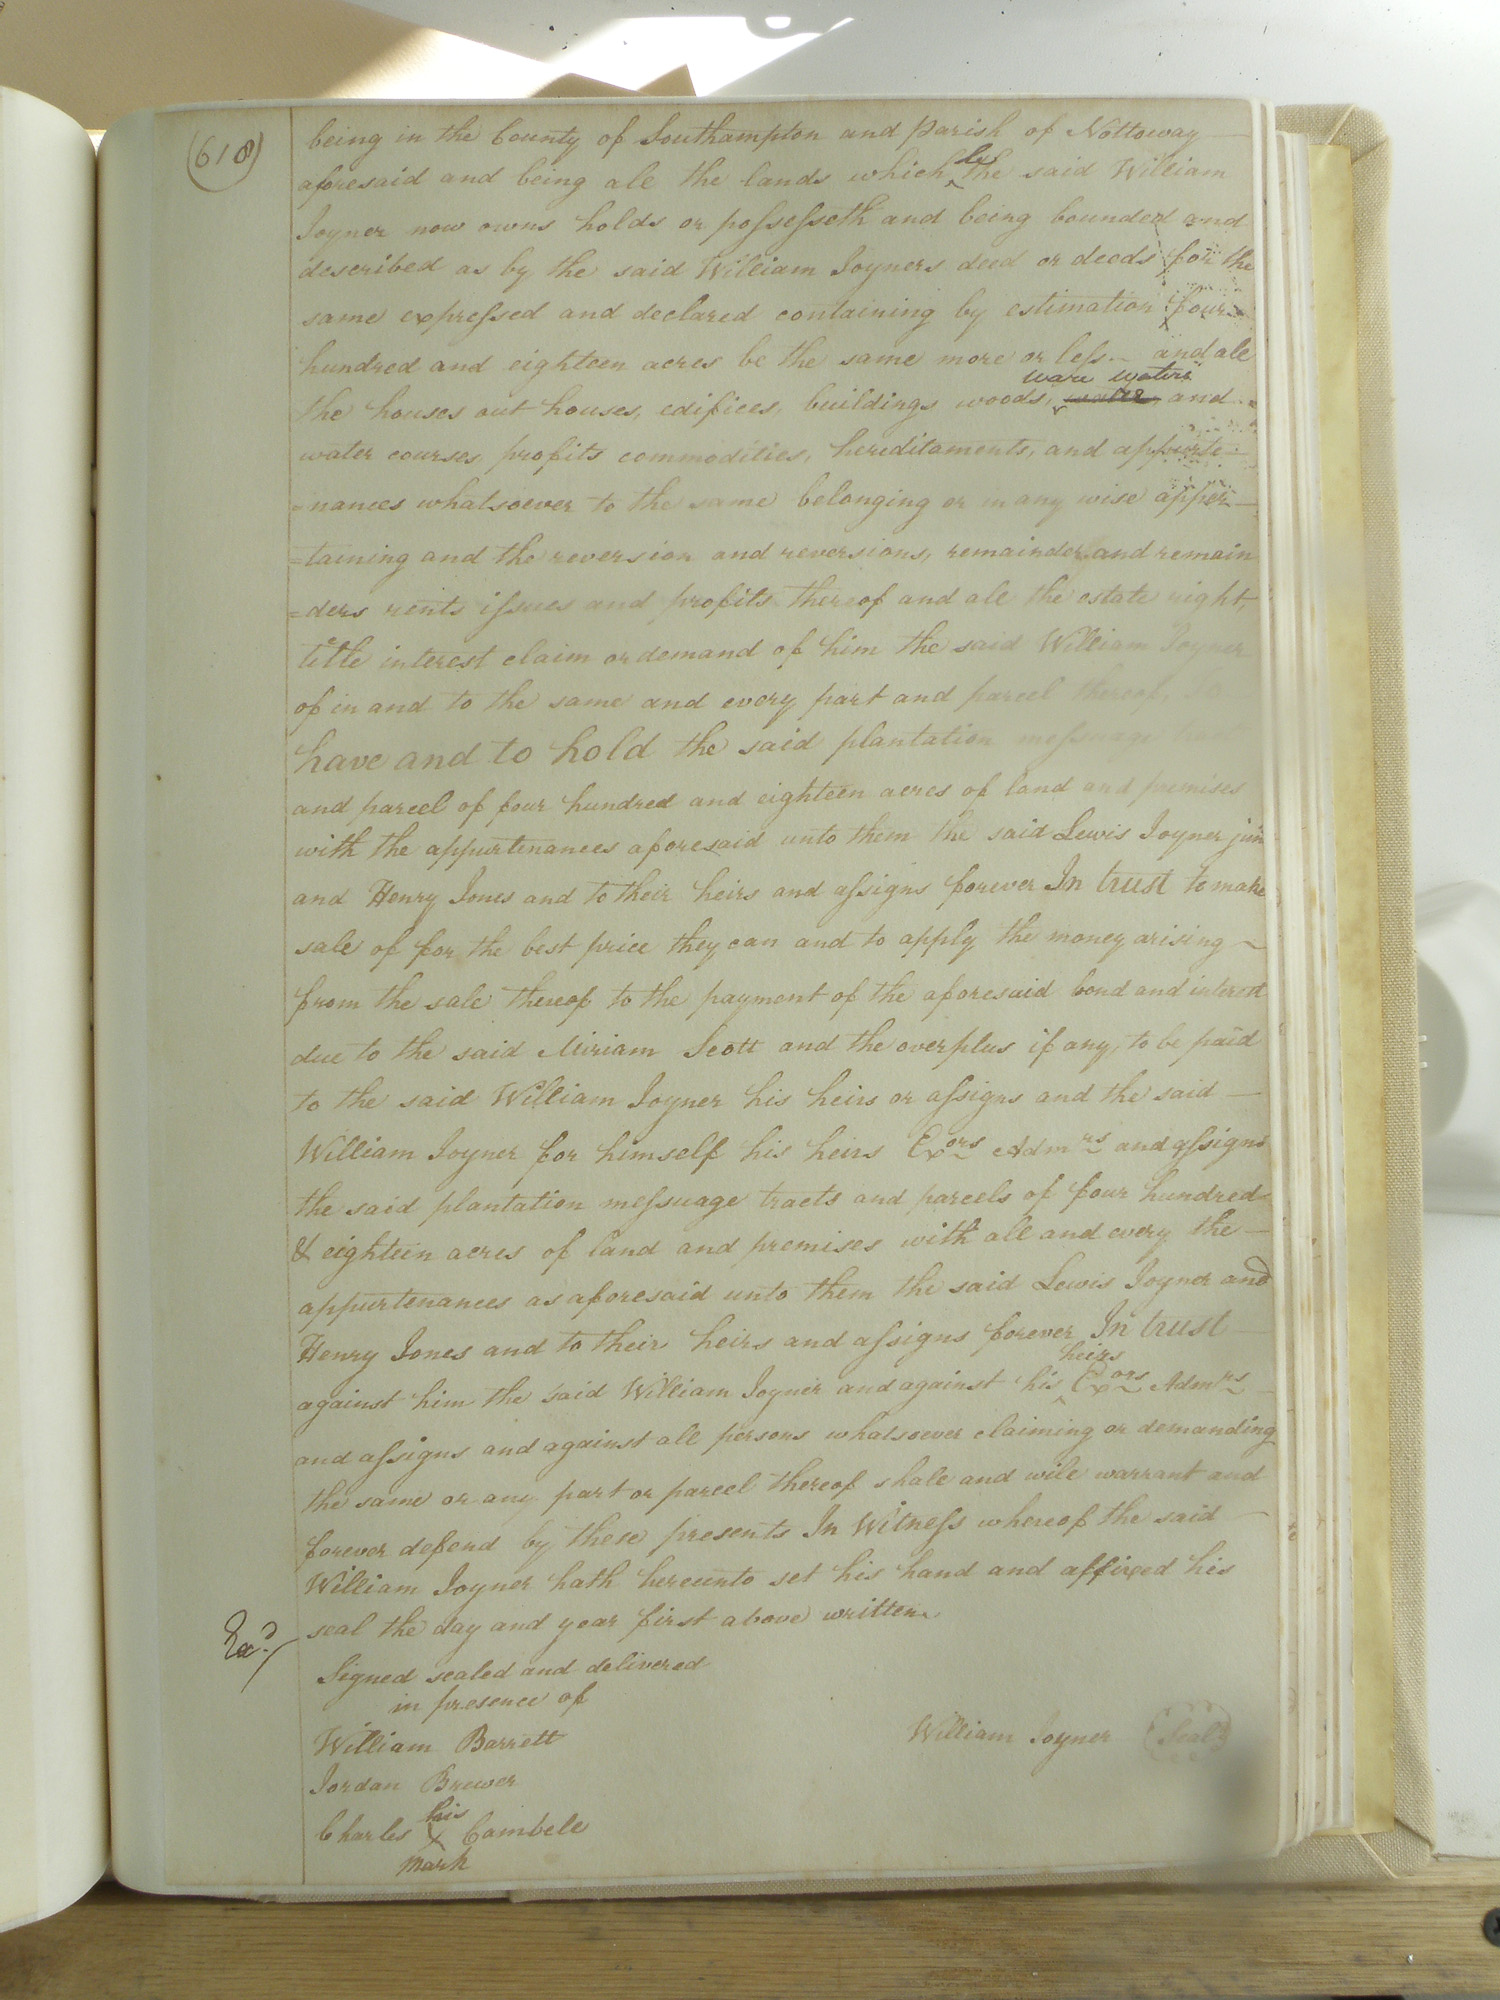 (618)
being in the County of Southampton and parish of Nottoway
aforesaid and being all the lands which he the said William
Joyner now owns holds or possesseth and being bounded and
described as by the said William Joyners deed or deeds for the
same expressed and declared containing by estimation four
hundred and eighteen acres be the same more or less and all
the houses out houses, edifices, buildings woods, ware waters and
water courses profits commodities, hereditaments, and appurte-
=nances whatsoever to the same belonging or in any wise apper-
=taining and the reversion and reversions, remainder and remain
=ders rents issues and profits thereof and all the estate right,
title interest claim or demand of him the said William Joyner
of in and to the same and every part and parcel thereof,
have and to hold the said plantation messuage
and parcel of four hundred and eighteen acres of land and premises
with the appurtenances aforesaid unto them the said Lewis Joyner jun
and Henry Jones and to their heirs and assigns forever In trust to make
sale of for the best price they can and to apply the money arising
from the sale thereof to the payment of the aforesaid bond and interest
due to the said Miriam Scott and the overplus if any, to be paid
to the said William Joyner his heirs or assigns and the said
William Joyner for himself his heirs Exors Admrs and assigns
the said plantation messuage tracts and parcels of four hundred
& eighteen acres of land and premises with all and every the
appurtenances as aforesaid unto them the said Lewis Joyner and
Henry Jones and to their heirs and assigns forever In trust
against him the said William Joyner and against his heirs Exors Admrs
and assigns and against all persons whatsoever claiming or demanding
the same or any part or parcel thereof shall and will warrant and
forever defend by these presents In Witness whereof the said
William Joyner hath hereunto set his hand and affixed his
seal the day and year first above written
Exd
Signed sealed and delivered
in presence of
William Barrett
William Joyner Seal
Jordan Brewer
his
Charles X Cambell
mark